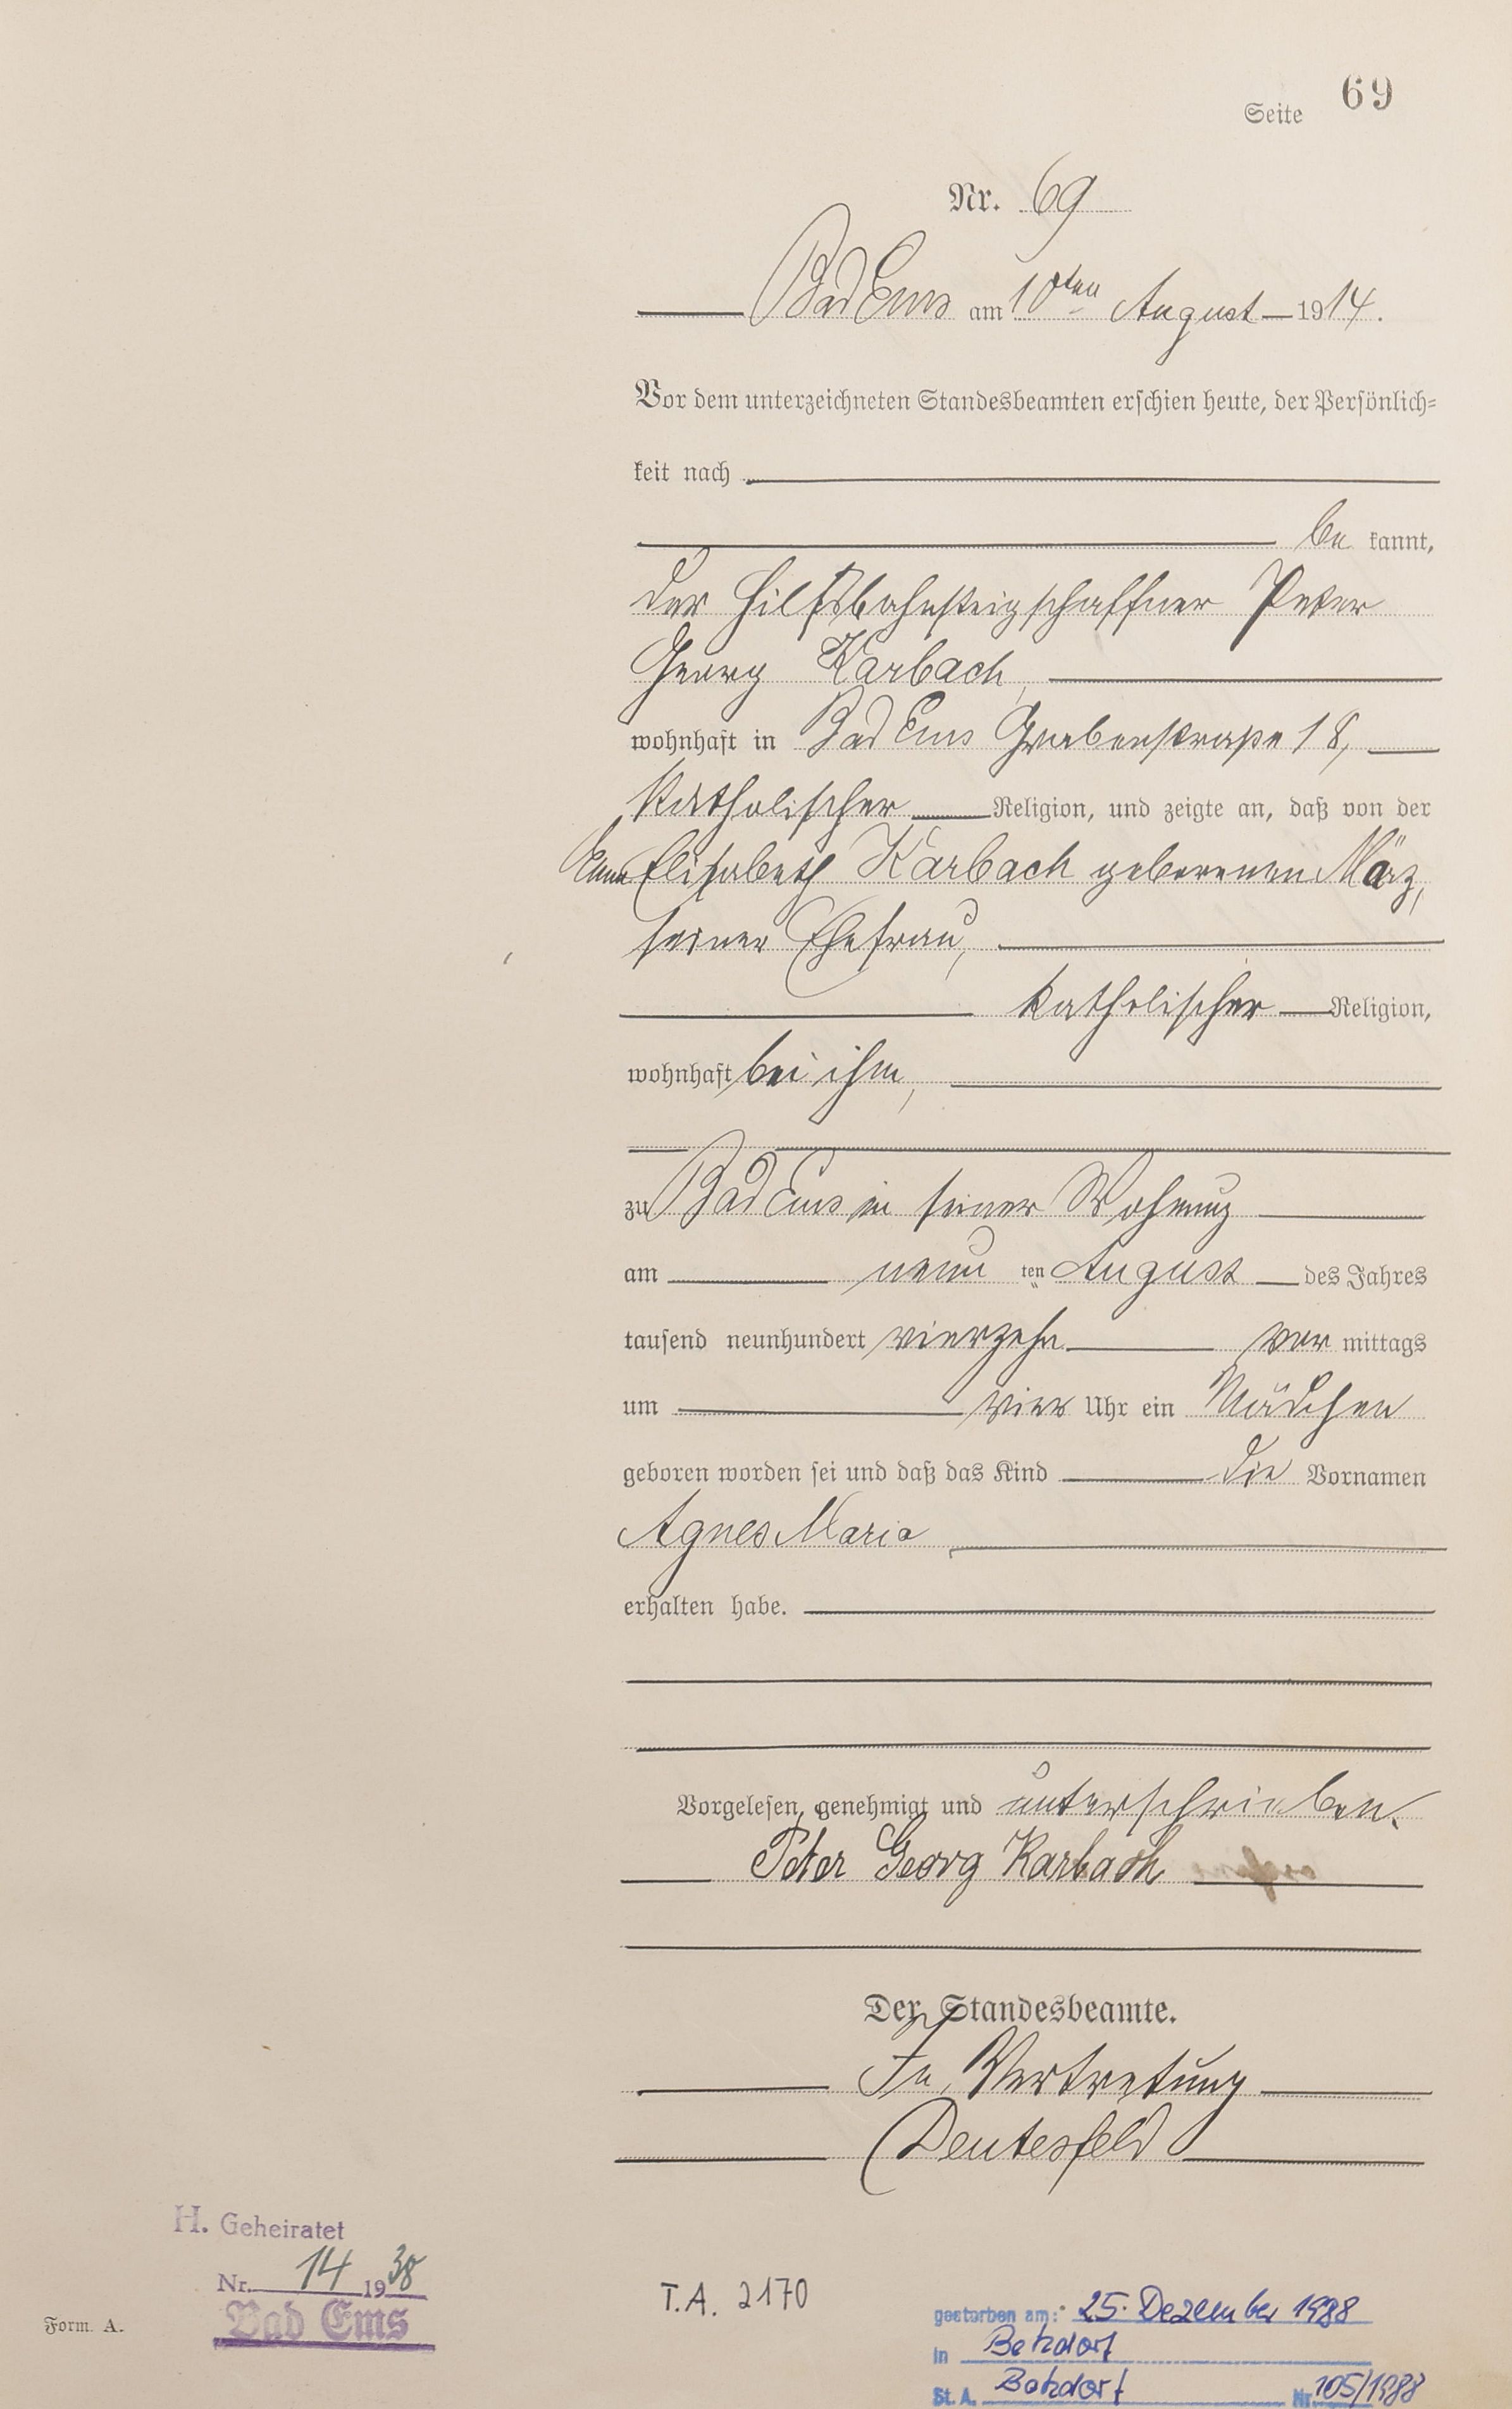 Seite 69
Nr. 69
Bad Ems am 10ten August 1914.
Vor dem unterzeichneten Standesbeamten erschien heute, der Persönlich=
keit nach
be kannt,
der Hilfsbahnsteigschaffner Peter
Georg Karbach,
wohnhaft in Bad Ems Grabenstraße 18,
katholischer Religion, und zeigte an, daß von der
Anna Elisabeth Karbach geborenen März,
seiner Ehefrau,
katholischer Religion,
wohnhaft bei ihm,
zu Bad Ems in seiner Wohnung
am neun ten August des Jahres
tausend neunhundert vierzehn vor mittags
um vier Uhr ein Mädchen
geboren worden sei und daß das Kind die Vornamen
Agnes Maria
erhalten habe.
Vorgelesen, genehmigt und unterschrieben.
Peter Georg Karbach
Der Standesbeamte.
In Vertretung
Deutesfeld
H. Geheiratet
Nr. 14 1938
Bad Ems
Form. A.
T.A. 2170
gestorben am: 25. Dezember 1988
in Betzdorf
St. A. Betzdorf Nr. 105/1988